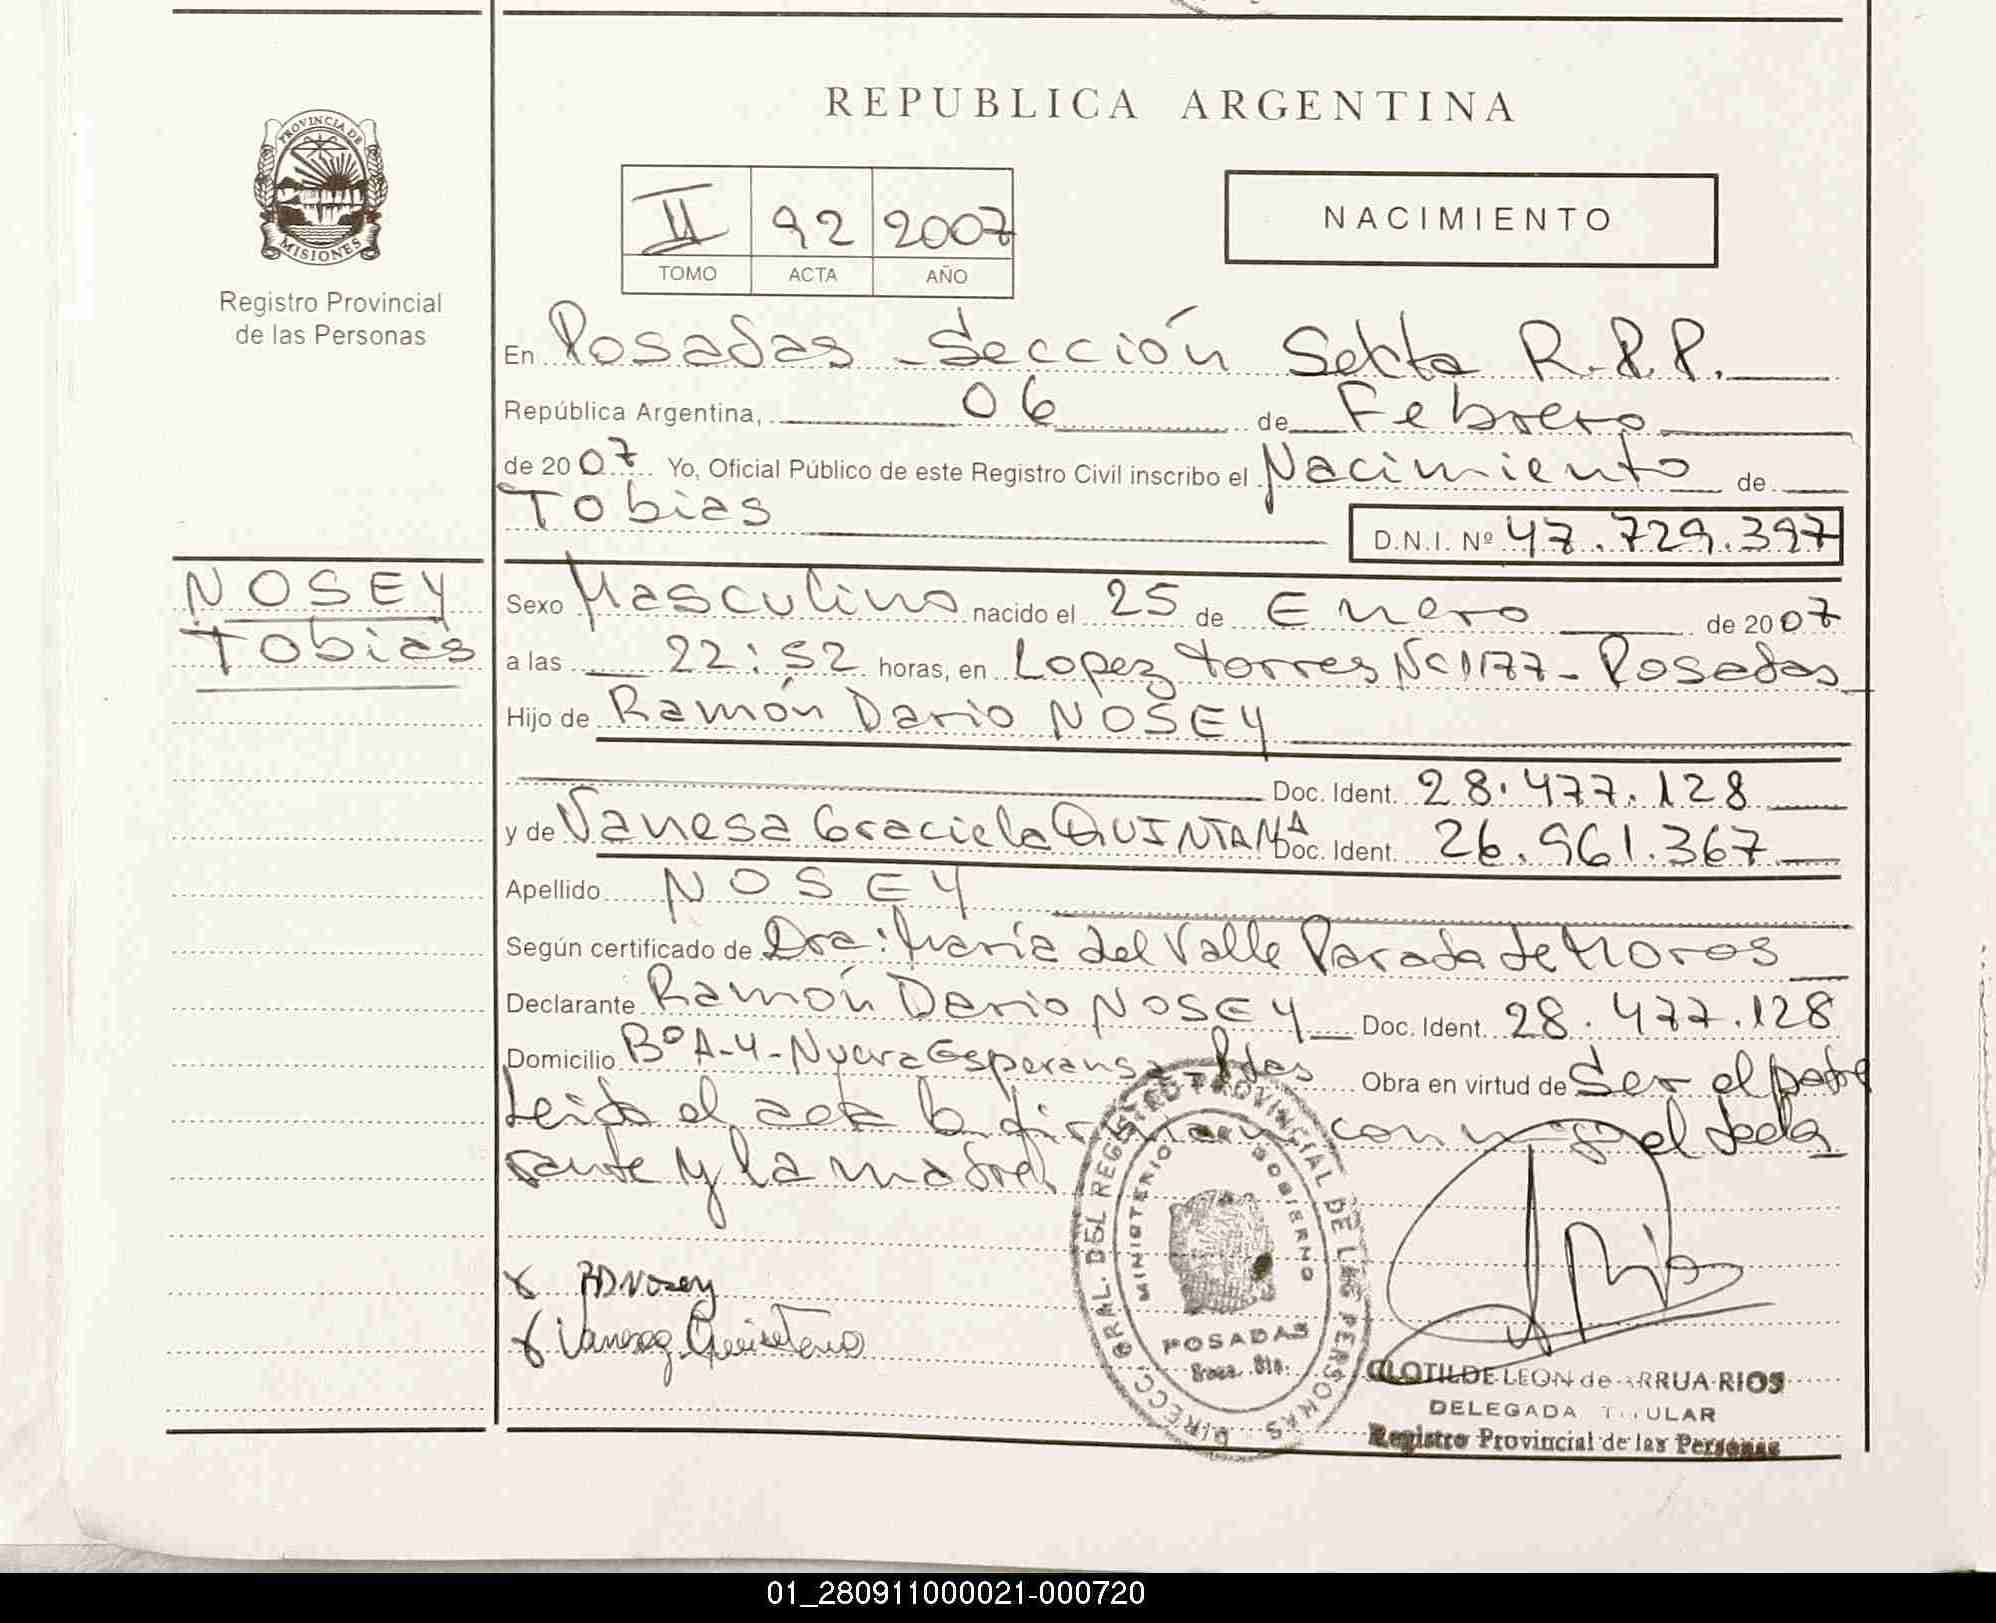 REPUBLICA ARGENTINA
PROVINCIA DE
MISIONES
Registro Provincial
de las Personas
II 92 2007
TOMO ACTA AÑO
NACIMIENTO
En Posadas - Sección Sexta R.P.P.
República Argentina, 06 de Febrero
de 2007 Yo, Oficial Público de este Registro Civil inscribo el Nacimiento de
Tobias
D.N.I. Nº 47.729.397
NOSEY
Tobias
Sexo Masculino nacido el 25 de Enero de 2007
a las 22:52 horas, en Lopez Torres Nº 1177 - Posadas
Hijo de Ramón Dario NOSEY
Doc. Ident. 28.477.128
y de Vanesa Graciela QUINTANA Doc. Ident. 26.961.367
Apellido NOSEY
Según certificado de Dra: María del Valle Parada de Moros
Declarante Ramón Dario NOSEY Doc. Ident. 28.477.128
Domicilio Bº A-4 - Nueva Esperansa - Pdas Obra en virtud de Ser el padre
Leida el acta la firman conmigo el decla
rante y la madre
RDNosey
Vanesa Quintana
DIRECC. GRAL. DEL REGISTRO PROVINCIAL DE LAS PERSONAS
MINISTERIO GOBIERNO
POSADAS
CLOTILDE LEON de ARRUA RIOS
DELEGADA TITULAR
Registro Provincial de las Personas
01_280911000021-000720